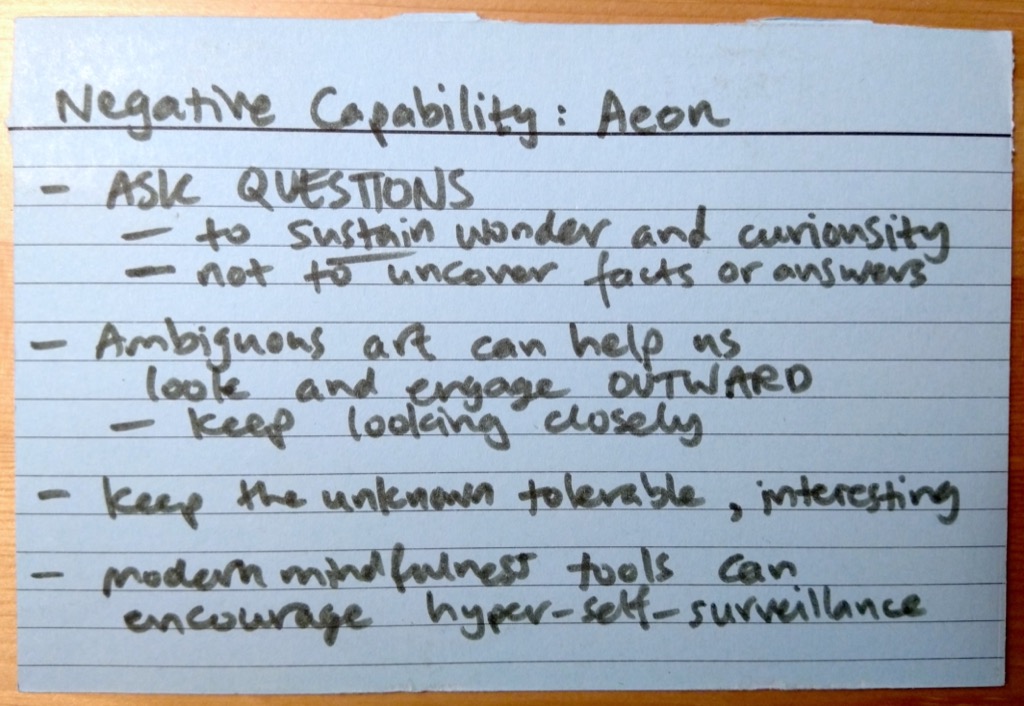 Negative Capability: Aeon
- ASK QUESTIONS
- to sustain wonder and curionsity
- not to uncover facts or answers
- Ambiguous art can help us
look and engage OUTWARD
- keep looking closely
- keep the unknown tolerable, interesting
- modern mindfulness tools can
encourage hyper-self-surveillance